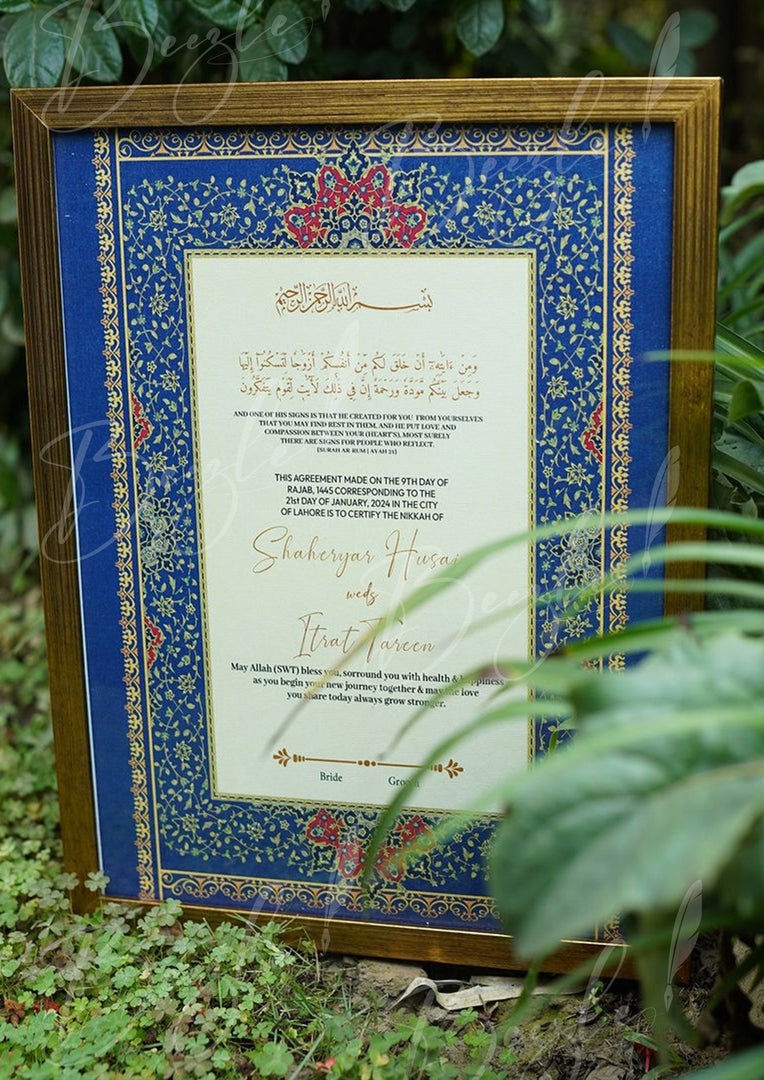 بسم الله الرحمن الرحيم
وَمِنْ ءَايَٰتِهِۦٓ أَنْ خَلَقَ لَكُم مِّنْ أَنفُسِكُمْ أَزْوَٰجًا لِّتَسْكُنُوٓا۟ إِلَيْهَا
وَجَعَلَ بَيْنَكُم مَّوَدَّةً وَرَحْمَةً إِنَّ فِى ذَٰلِكَ لَءَايَٰتٍ لِّقَوْمٍ يَتَفَكَّرُونَ
AND ONE OF HIS SIGNS IS THAT HE CREATED FOR YOU FROM YOURSELVES
THAT YOU MAY FIND REST IN THEM, AND HE PUT LOVE AND
COMPASSION BETWEEN YOUR (HEART'S). MOST SURELY
THERE ARE SIGNS FOR PEOPLE WHO REFLECT.
(SURAH AR RUM | AYAH 21)
THIS AGREEMENT MADE ON THE 9TH DAY OF
RAJAB, 1445 CORRESPONDING TO THE
21st DAY OF JANUARY, 2024 IN THE CITY
OF LAHORE IS TO CERTIFY THE NIKKAH OF
Shaheryar
weds
Itrat Tareen
May Allah (SWT) bless you, sorround you with health & happiness
as you begin your new journey together & may the love
you share today always grow stronger.
Bride Groom
Beezle